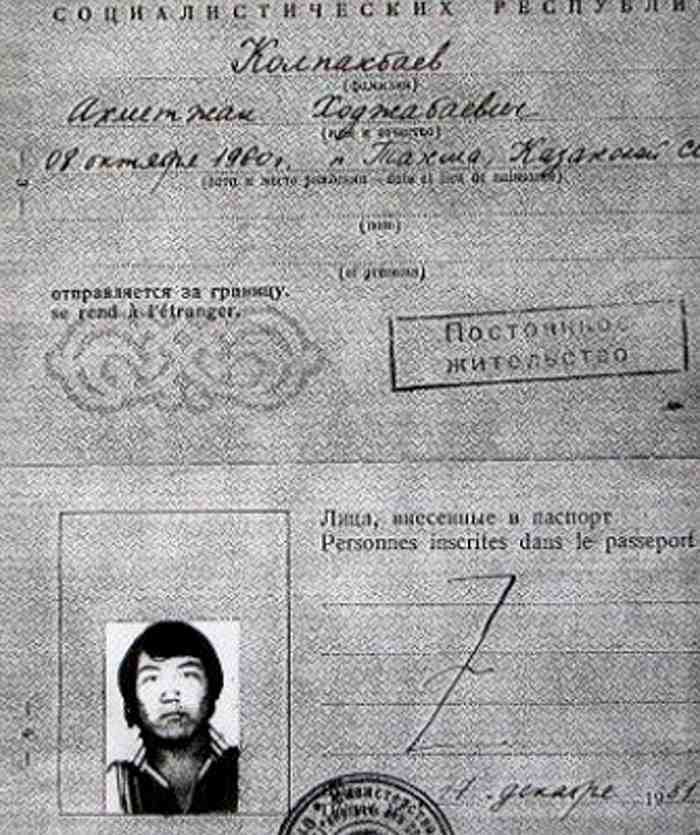 СОЦИАЛИСТИЧЕСКИХ РЕСПУБЛИ
Колпакбаев
(фамилия)
Ахметжан Ходжабаевич
(имя и отчество)
08 октября 1960г. п Казахской
(дата и место рождения - date et lieu de naissance)
(nom)
(et prénoms)
отправляется за границу.
se rend à l'étranger.
Постоянное
жительство
Лица, внесенные в паспорт
Personnes inscrites dans le passeport
декабря 19
Министерство